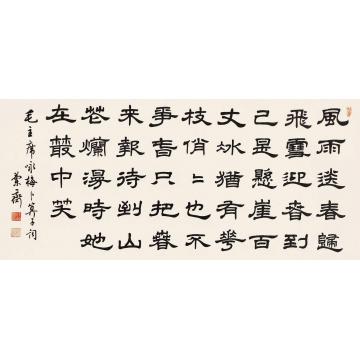 風雨送春歸
飛雪迎春到
已是懸崖百
丈冰猶有華
枝俏〻也不
爭春只把春
來報待到山
花爛漫時她
在叢中笑
毛主席咏梅卜算子詞